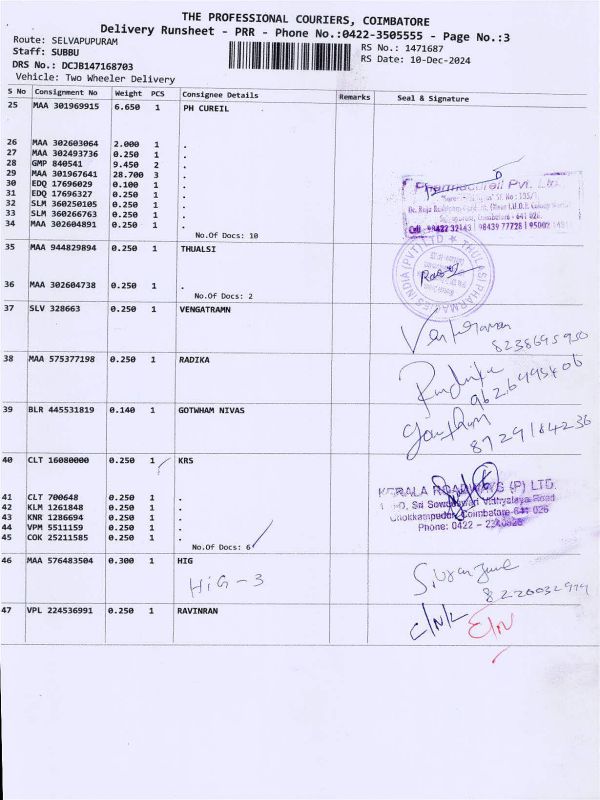 THE PROFESSIONAL COURIERS, COIMBATORE
Delivery Runsheet - PRR - Phone No.:0422-3505555 - Page No.:3
Route: SELVAPUPURAM
RS No.: 1471687
Staff: SUBBU
RS Date: 10-Dec-2024
DRS No.: DCJB147168703
Vehicle: Two Wheeler Delivery
S No Consignment No Weight PCS Consignee Details Remarks Seal & Signature
25 MAA 301969915 6.650 1 PH CUREIL
26 MAA 302603064 2.000 1 .
27 MAA 302493736 0.250 1 .
28 GMP 840541 9.450 2 .
29 MAA 301967641 28.700 3 .
30 EDQ 17696029 0.100 1 .
31 EDQ 17696327 0.250 1 .
32 SLM 360250105 0.250 1 .
33 SLM 360266763 0.250 1 .
34 MAA 302604891 0.250 1 .
No.Of Docs: 10
Pvt. Ltd.
Coimbatore - 641 026.
Cell : 98422 32143 | 98439 77728 |
35 MAA 944829894 0.250 1 THUALSI
THULASI PHARMACIES INDIA (PVT) LTD
36 MAA 302604738 0.250 1 .
No.Of Docs: 2
37 SLV 328663 0.250 1 VENGATRAMN
8238695950
38 MAA 575377198 0.250 1 RADIKA
9626495406
39 BLR 445531819 0.140 1 GOTWHAM NIVAS
8729184236
40 CLT 16080000 0.250 1 KRS
41 CLT 700648 0.250 1 .
42 KLM 1261848 0.250 1 .
43 KNR 1286694 0.250 1 .
44 VPM 5511159 0.250 1 .
45 COK 25211585 0.250 1 .
No.Of Docs: 6
KERALA ROADWAYS (P) LTD.
Sri Sowdeswari Vidhyalaya Road
Chokkampudur, Coimbatore-641 026
Phone: 0422 -
46 MAA 576483504 0.300 1 HIG
HIG-3
47 VPL 224536991 0.250 1 RAVINRAN
C/N/L E/N